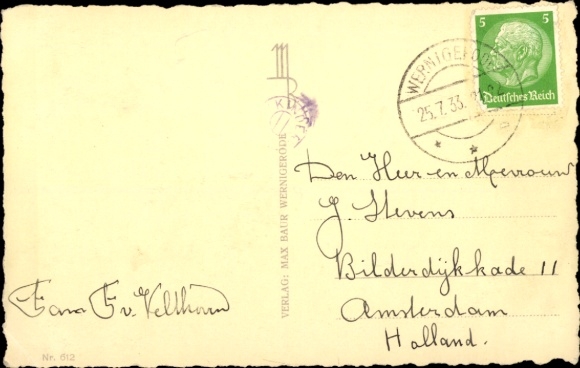 5 5
Deutsches Reich
WERNIGERODE
25.7.33.
VERLAG: MAX BAUR WERNIGERODE
Den Heer en Mevrouw
J. Stevens
Bilderdijkkade 11
Amsterdam
Holland.
Fam F v. Velthoven
Nr. 612